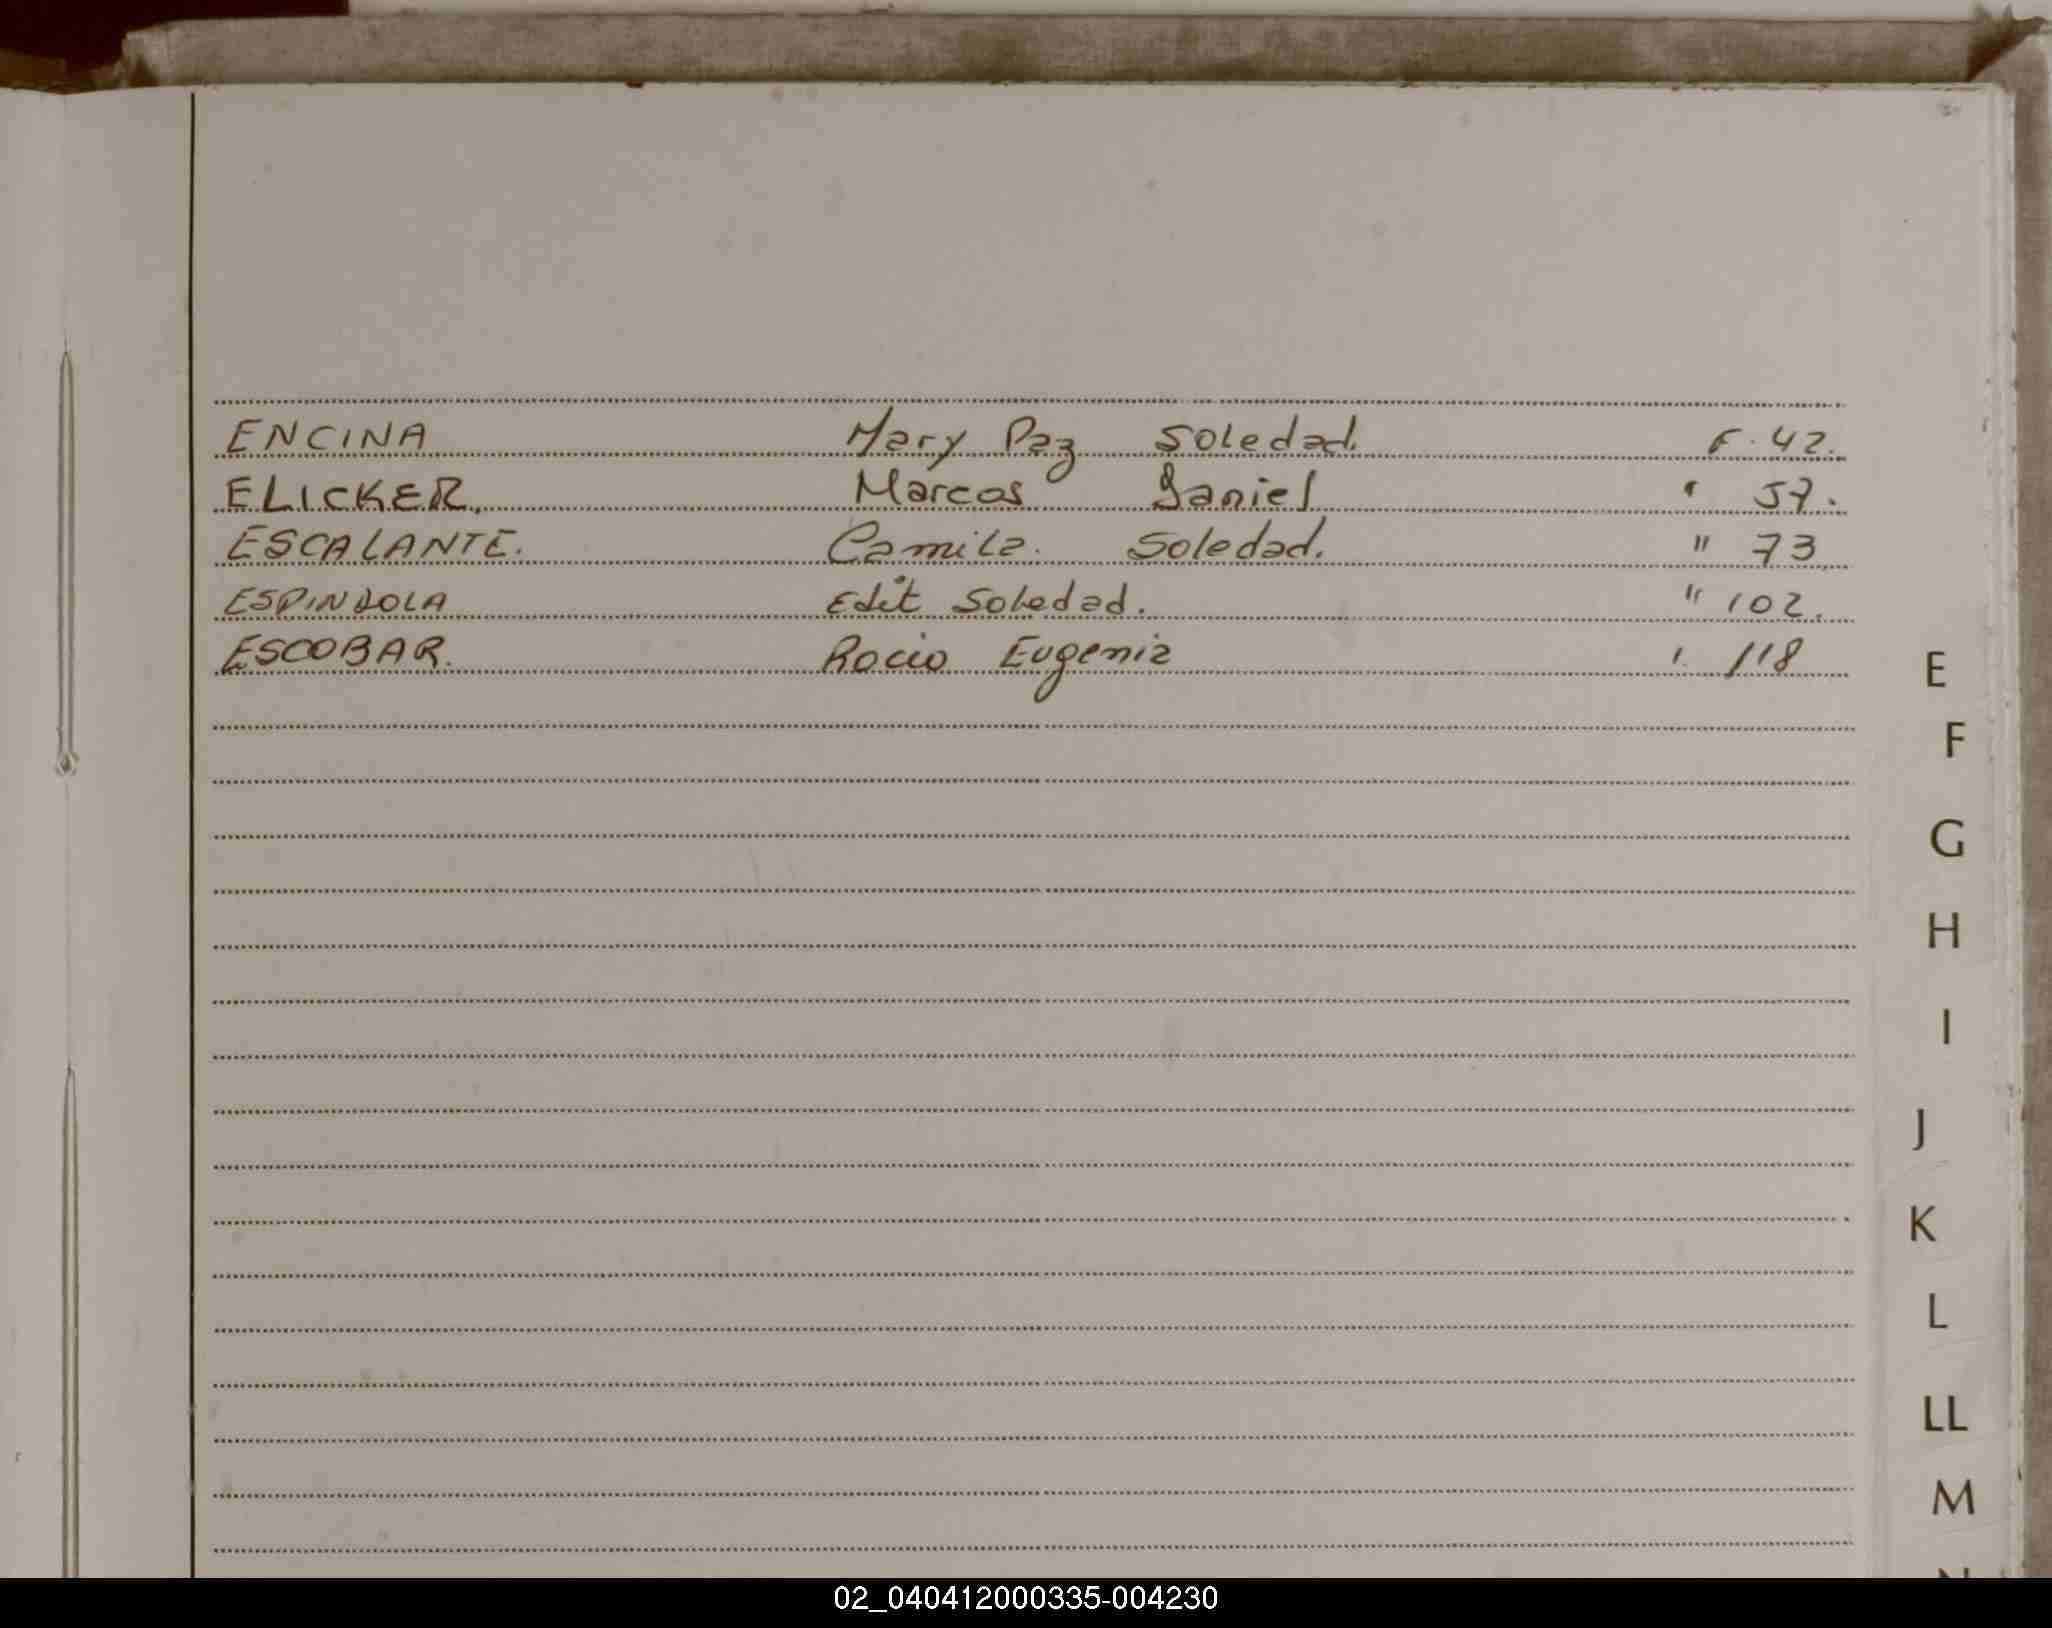 ENCINA Mary Paz Soledad. F. 42.
ELICKER. Marcos Daniel " 57.
ESCALANTE. Camila. Soledad. " 73
ESPINDOLA Edit Soledad. " 102.
ESCOBAR. Rocio Eugenia " 118
E
F
G
H
I
J
K
L
LL
M
N
02_040412000335-004230